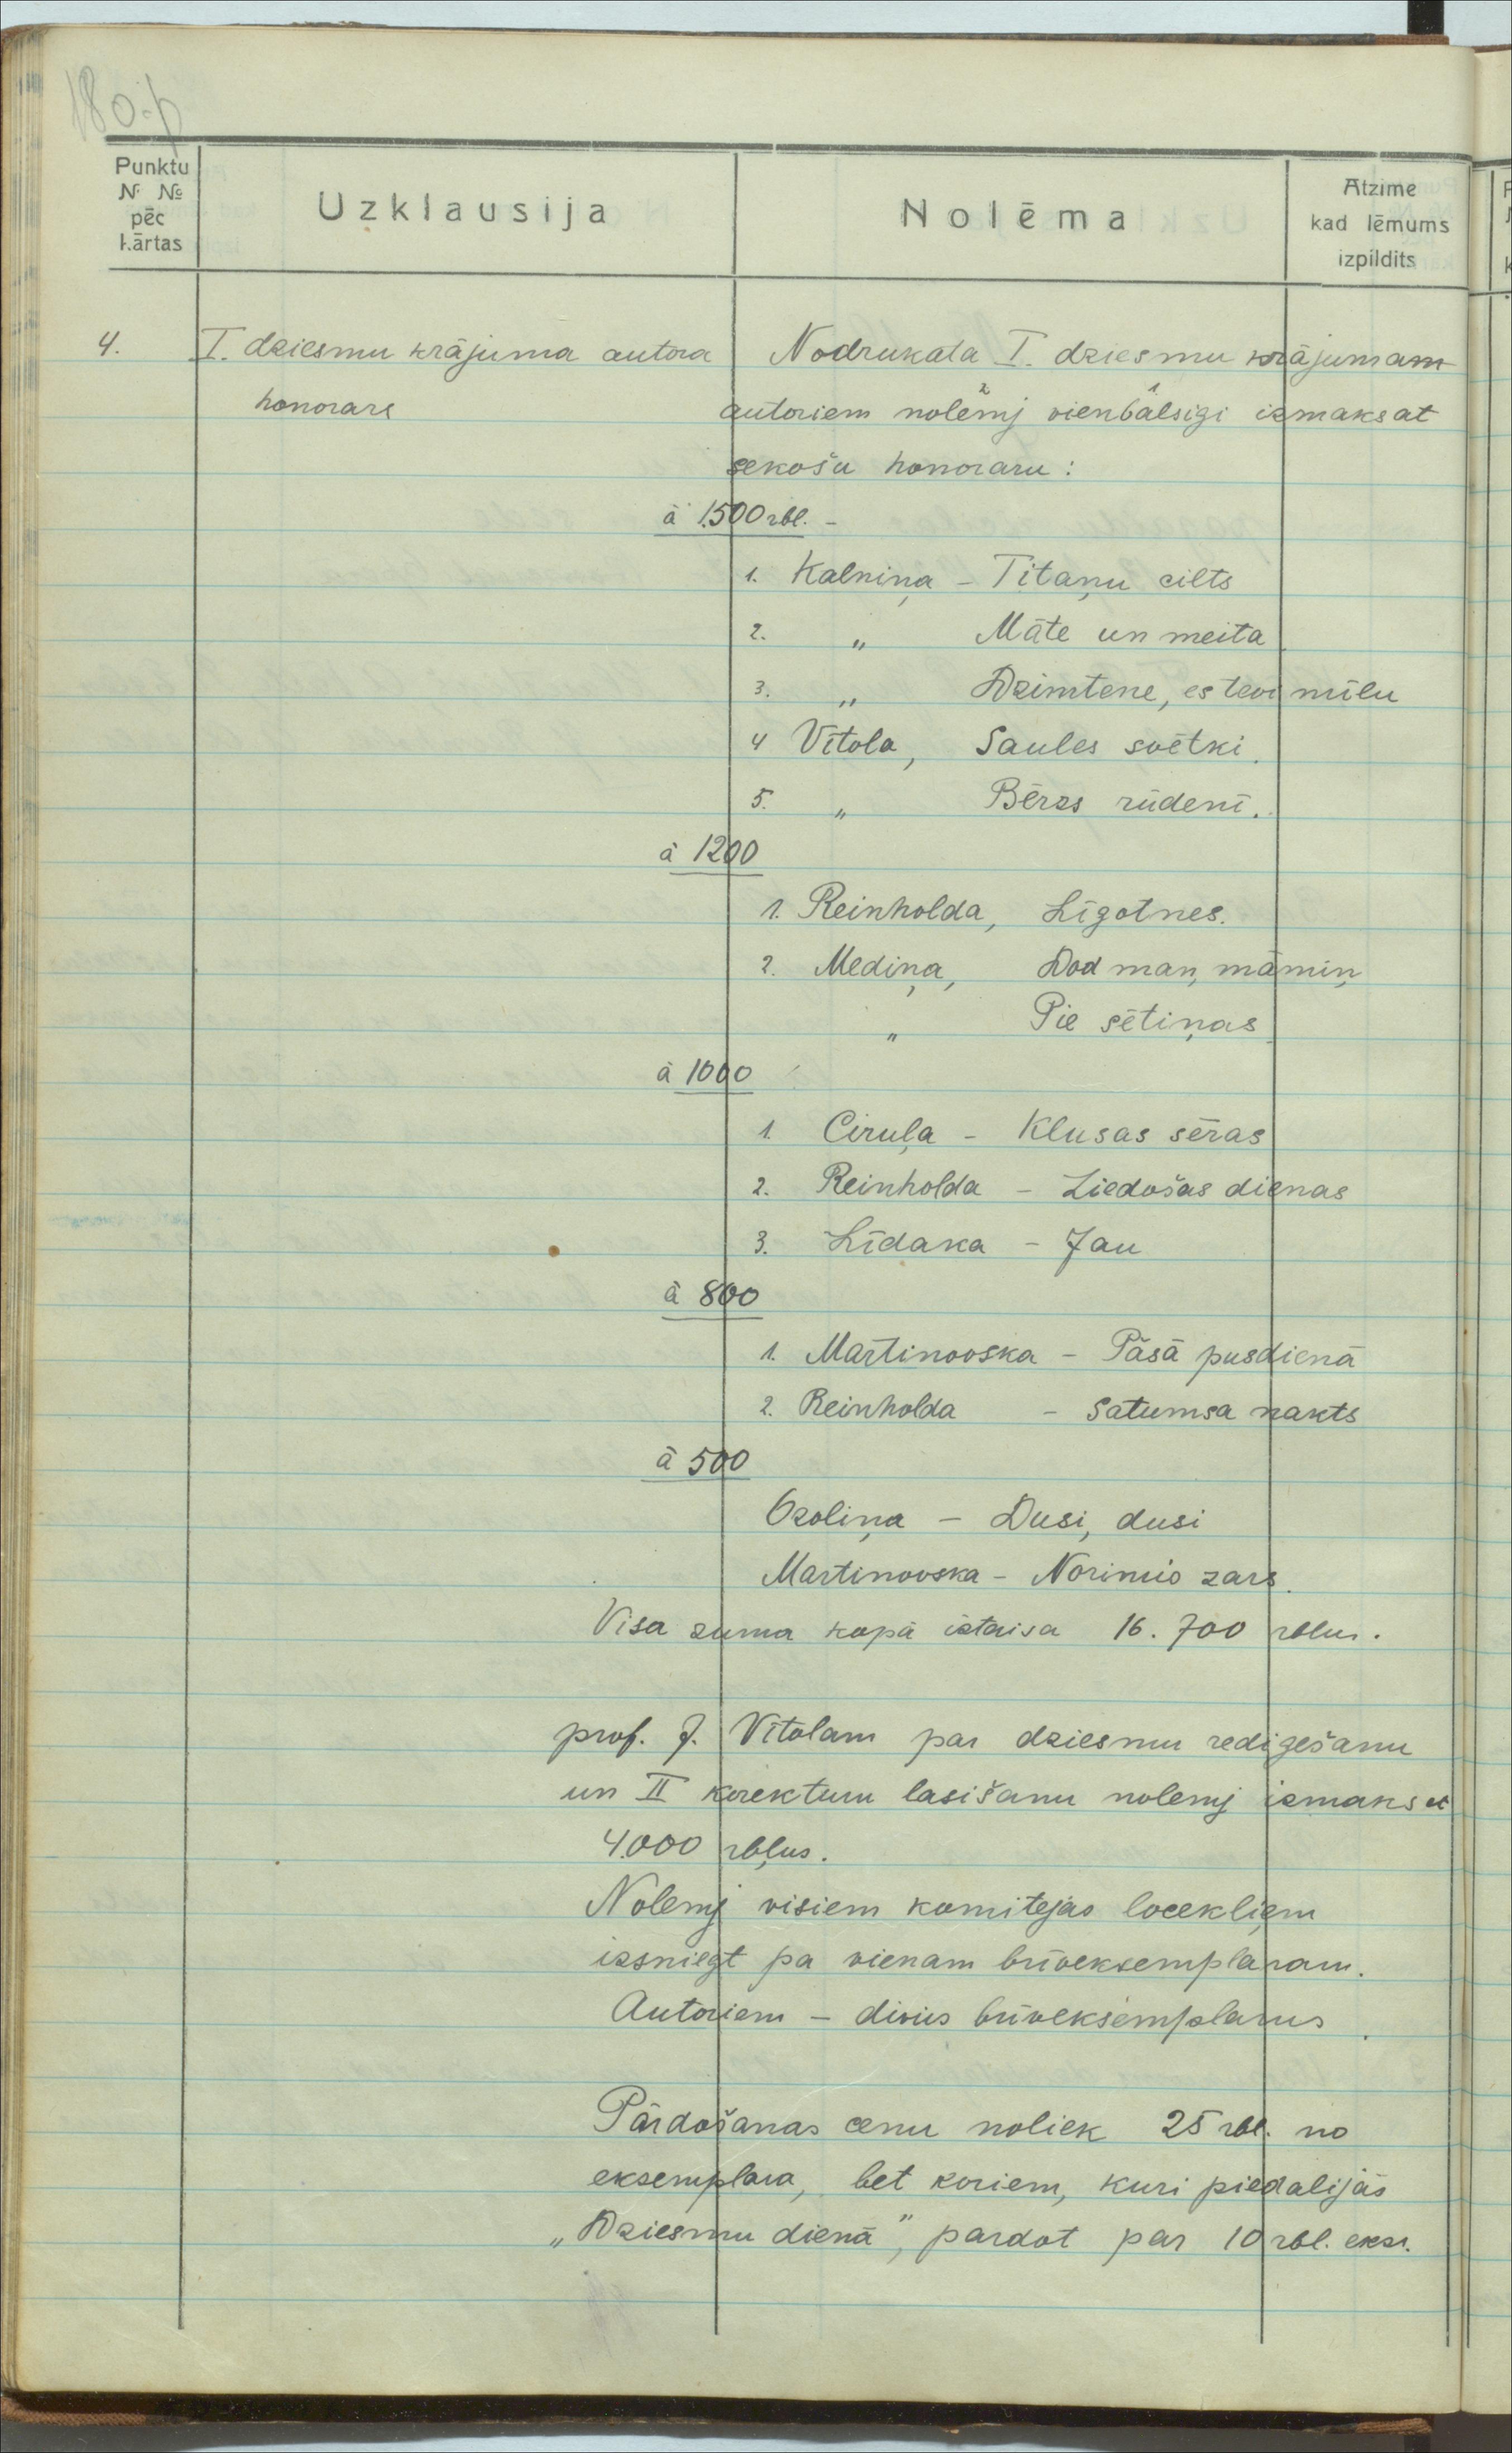 180-p
Punktu
N. №
pēc
kārtas
Uzklausija
Nolēma
Atzime
kad lēmums
izpildits
4.
I. dziesmu krājuma autora
honorars
Nodrukata I. dziesmu krājumam
2 1
autoriem nolēmj vienbalsigi izmaksat
sekošu honoraru:
à 1.500 rbl. -
1. Kalniņa - Titaņu cilts
2. „ Māte un meita
3. „ Dzimtene, es tevi mīlu
4 Vītola, Saules svētki.
5. „ Bērzs rūdenī.
à 1200
1. Reinholda, Līgotnes.
2. Mediņa, Dod man, māmiņ
„ Pie sētiņas
à 1000
1. Ciruļa - Klusas sēras
2. Reinholda - Ziedošas dienas
3. Līdaka - Jau
à 800
1. Mārtinovska - Pāšā pusdienā
2. Reinholda - Satumsa nakts
à 500
Ozoliņa - Dusi, dusi
Martinovska - Norimis zars.
Visa suma kopā iztaisa 16.700 rblus.
prof. J. Vītolam par dziesmu redigešanu
un II korekturu lasišanu nolemj izmaksat
4.000 rbļus.
Nolemj visiem komitejas locekļiem
izsniegt pa vienam brīveksemplaram.
Autoriem - divus brīveksemplarus.
Pārdošanas cenu noliek 25 rbl. no
eksemplara, bet koriem, kuri piedalijās
„Dziesmu dienā", pardot par 10 rbl. eksr.